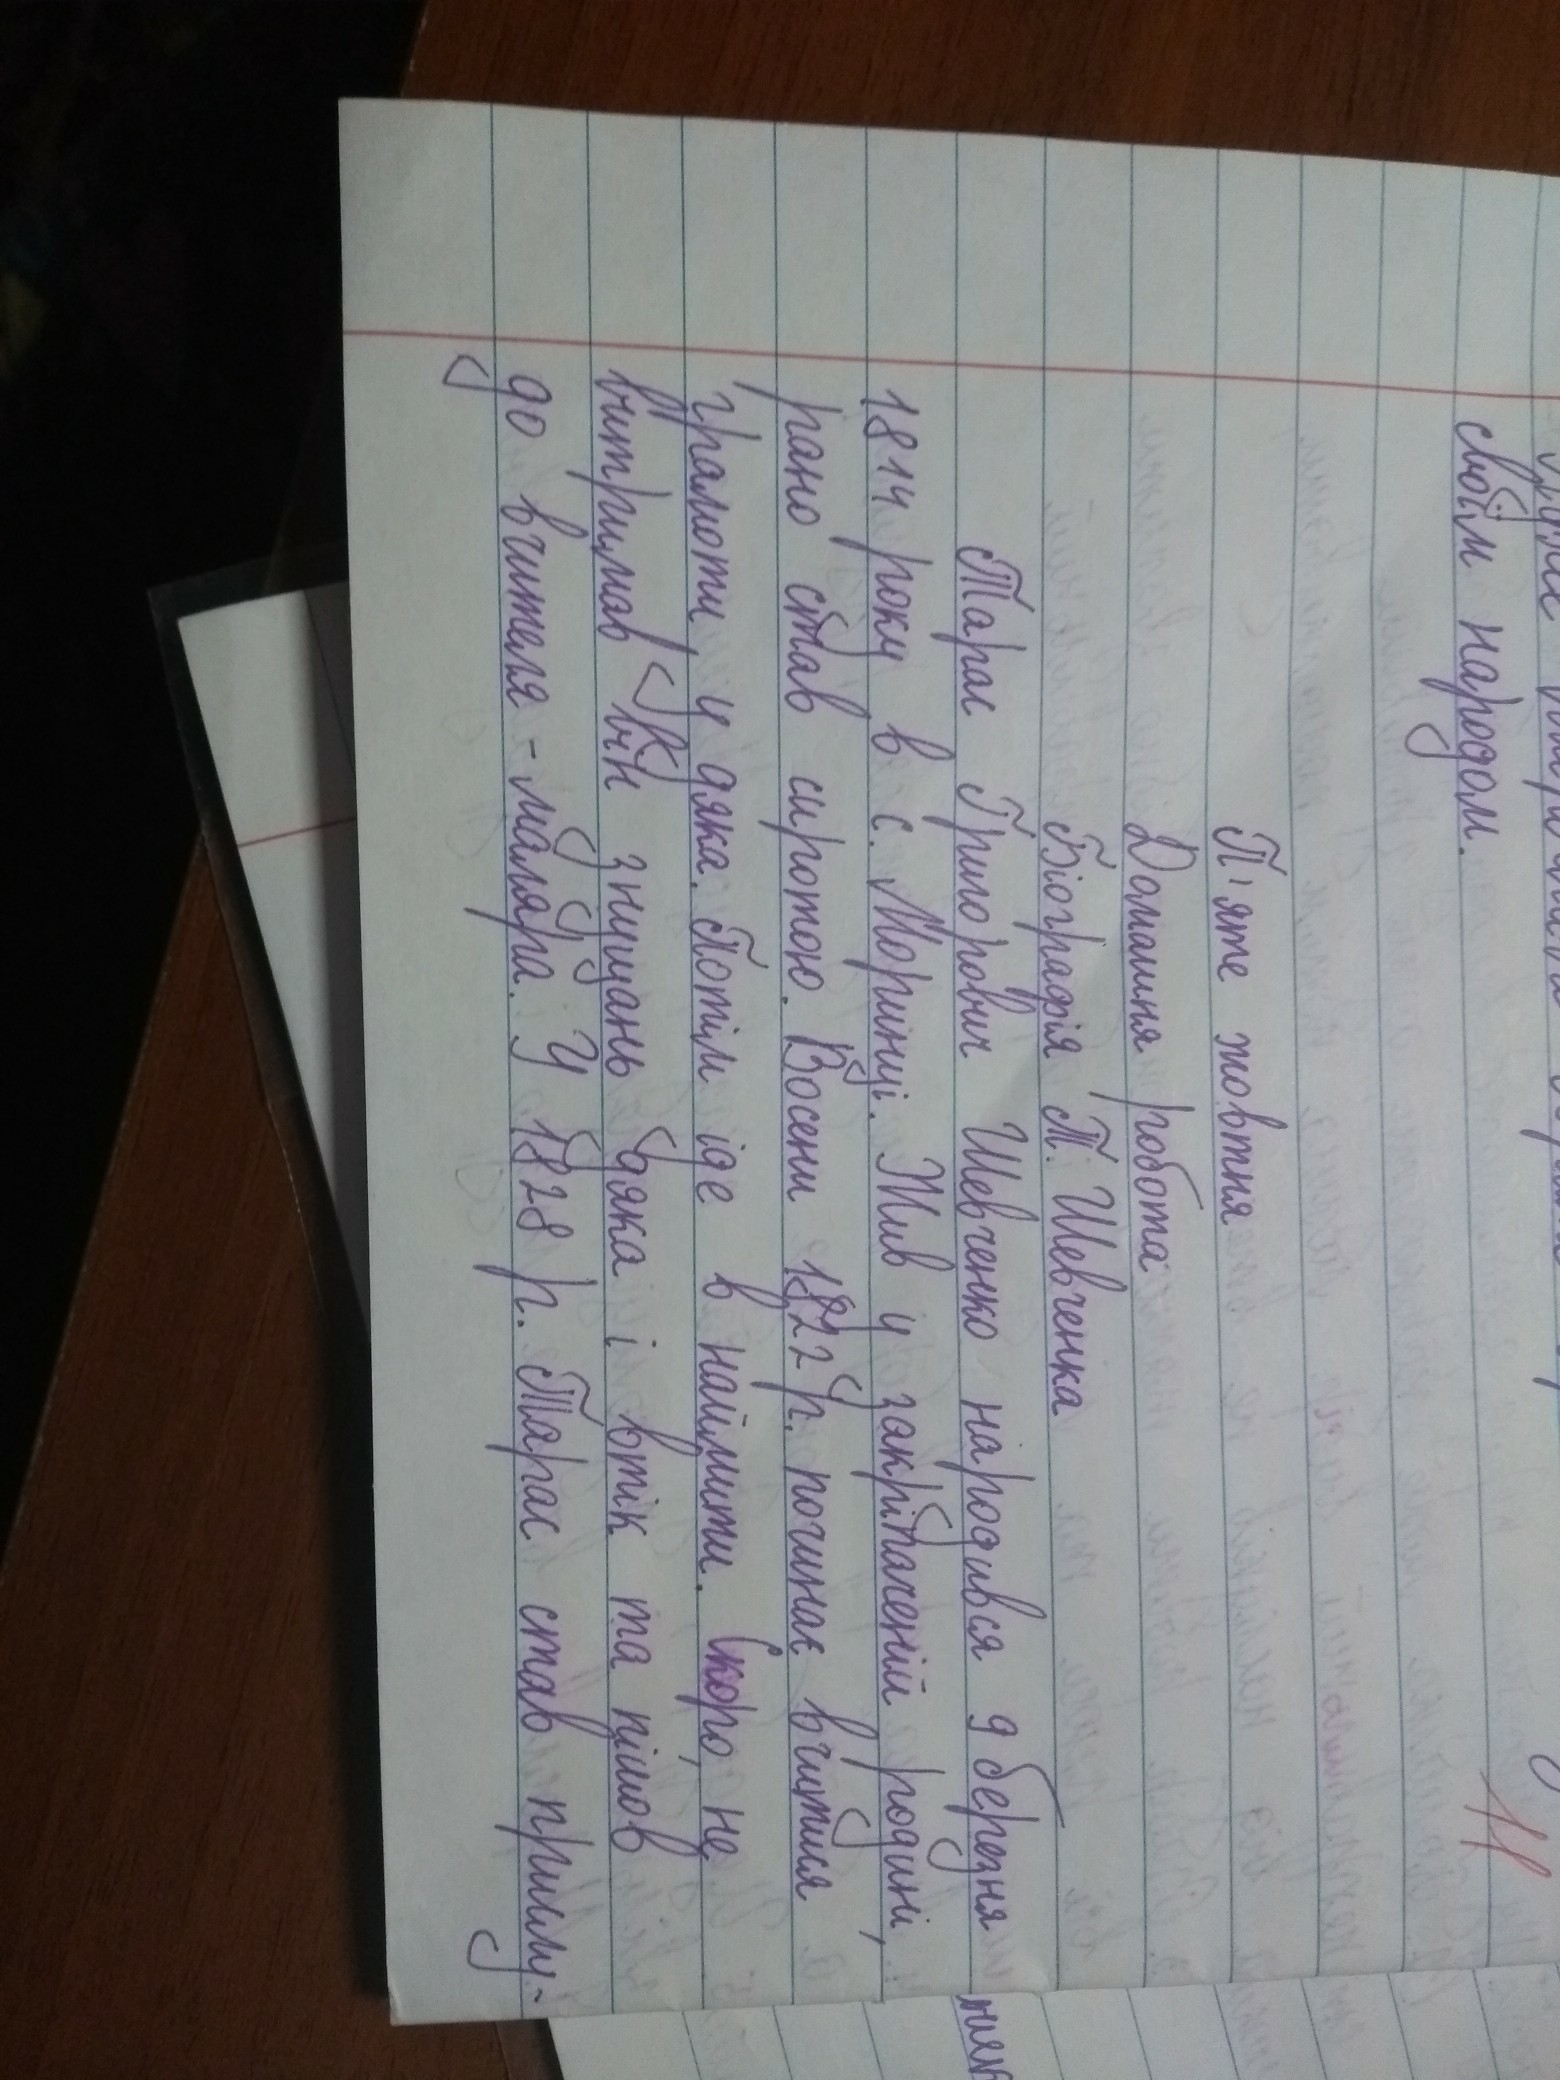 дуже
своїм народом.
11
П'яте жовтня
Домашня робота
Біографія Т. Шевченка
Тарас Григорович Шевченко народився 9 березня
1814 року в с. Моринці. Жив у закріпаченій родині,
рано став сиротою. Восени 1822 р. починає вчитися
грамоти у дяка. Потім іде в найми. Скоро, не
витримав він знущань дяка і втік та пішов
до вчителя - маляра. У 1828 р. Тарас став прислу-